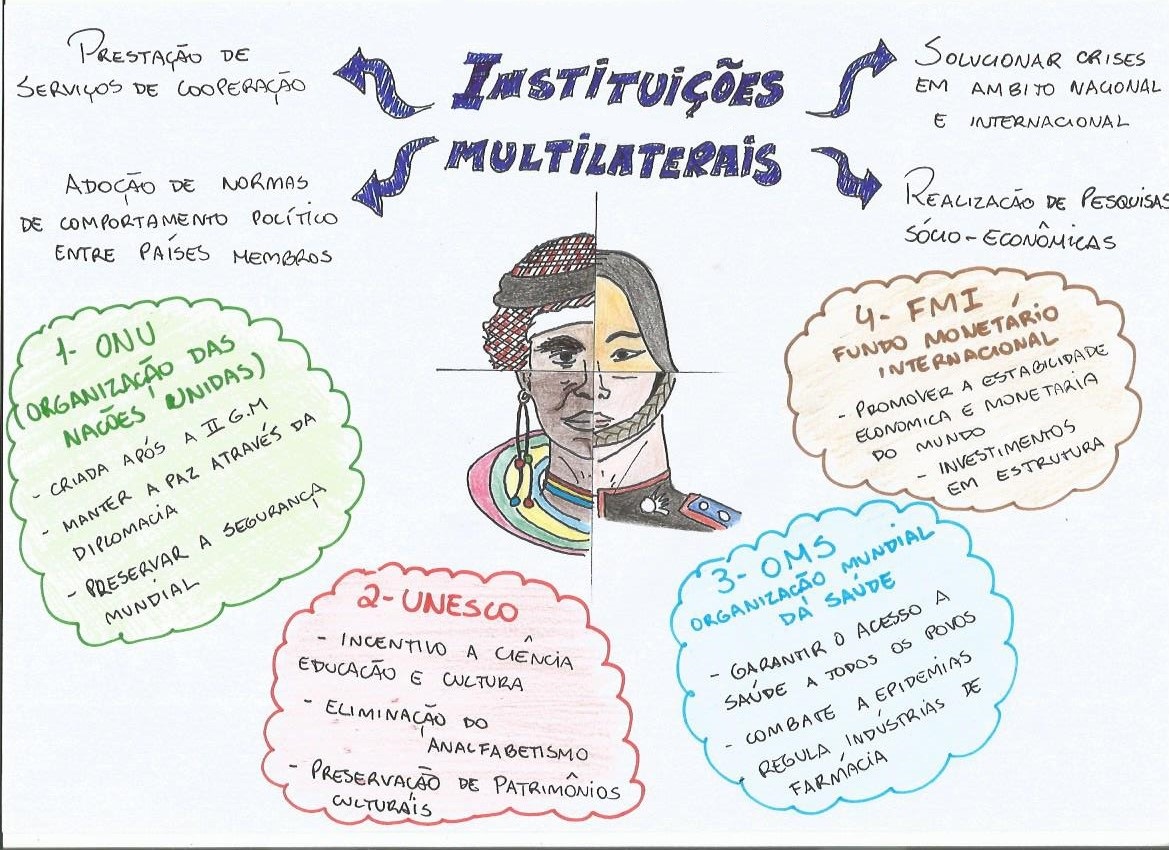 INSTITUIÇÕES
MULTILATERAIS
PRESTAÇÃO DE
SERVIÇOS DE COOPERAÇÃO
ADOÇÃO DE NORMAS
DE COMPORTAMENTO POLÍTICO
ENTRE PAÍSES MEMBROS
SOLUCIONAR CRISES
EM AMBITO NACIONAL
E INTERNACIONAL
REALIZACÃO DE PESQUISAS
SÓCIO-ECONÔMICAS
1- ONU
(ORGANIZAÇÃO DAS
NACÕES UNIDAS)
- CRIADA APÓS A II G.M
- MANTER A PAZ ATRAVÉS DA
DIPLOMACIA
- PRESERVAR A SEGURANÇA
MUNDIAL
2- UNESCO
- INCENTIVO A CIÊNCIA
EDUCACÃO E CULTURA
- ELIMINAÇÃO DO
ANALFABETISMO
- PRESERVAÇÃO DE PATRIMÔNIOS
CULTURAIS
3- OMS
ORGANIZACÃO MUNDIAL
DA SAÚDE
- GARANTIR O ACESSO A
SAÚDE A TODOS OS POVOS
- COMBATE A EPIDEMIAS
- REGULA INDÚSTRIAS DE
FARMÁCIA
4- FMI
FUNDO MONETÁRIO
INTERNACIONAL
- PROMOVER A ESTABILIDADE
ECONOMICA E MONETARIA
DO MUNDO
- INVESTIMENTOS
EM ESTRUTURA